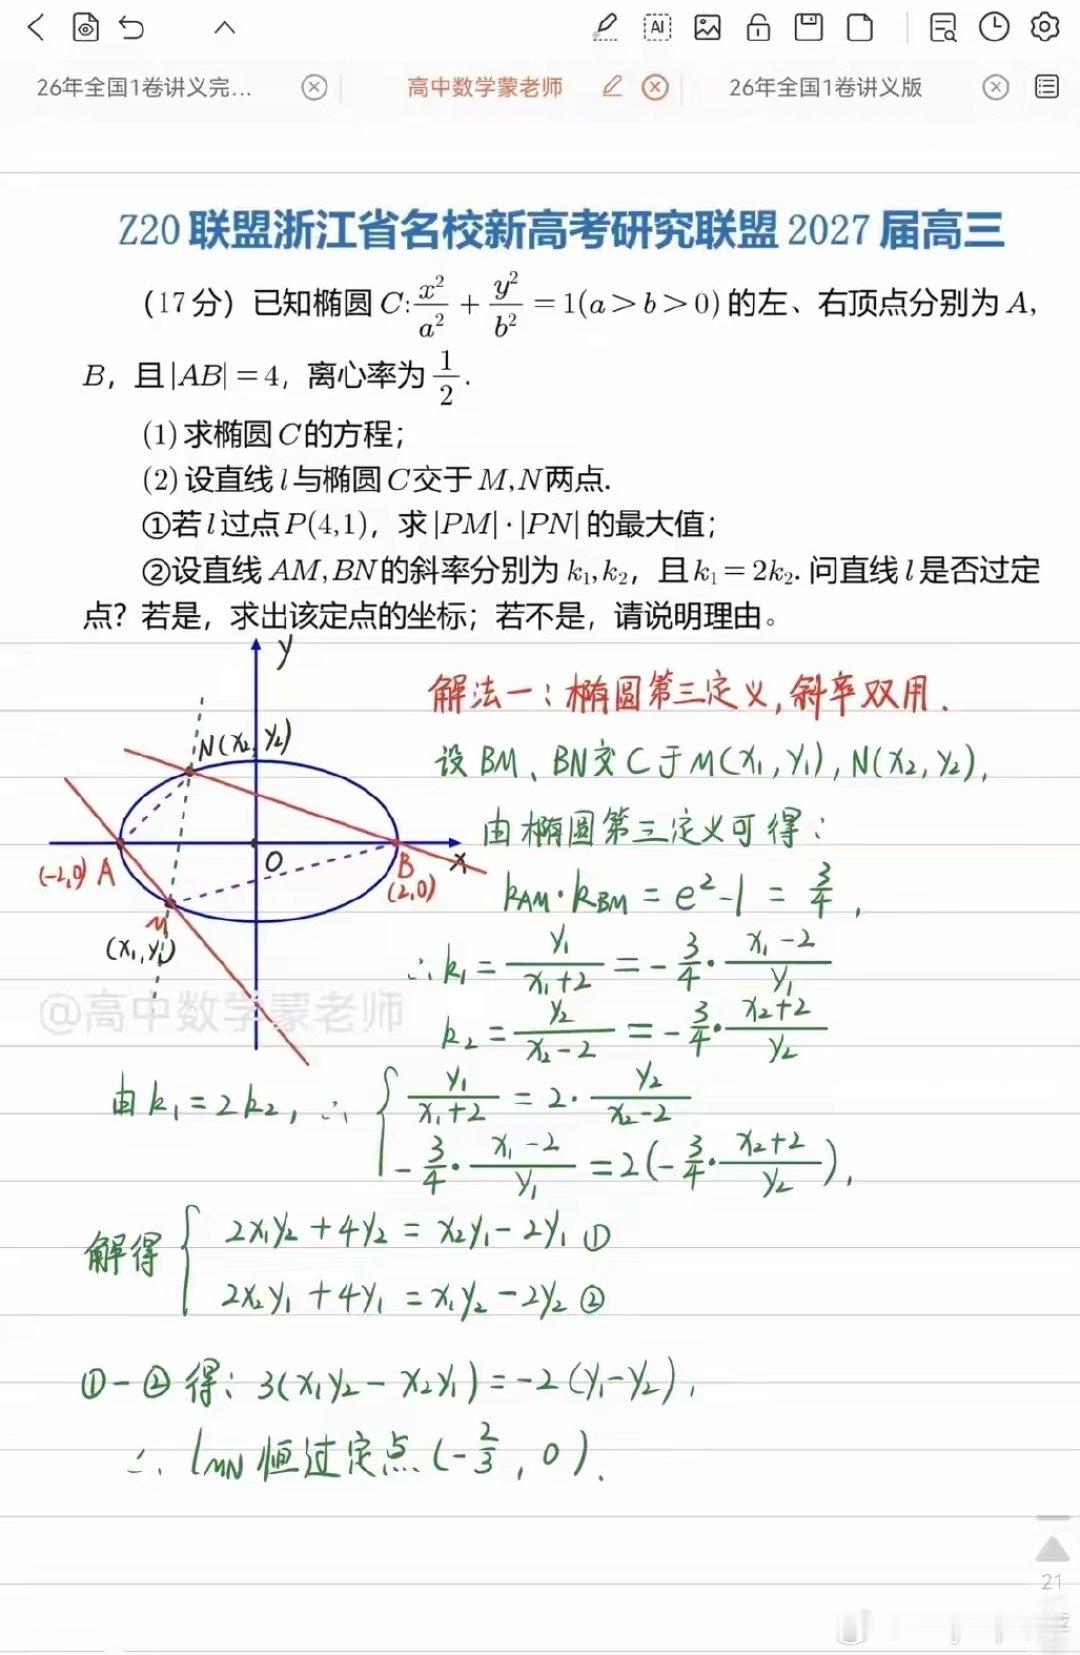 26年全国1卷讲义完... 高中数学蒙老师 26年全国1卷讲义版
Z20联盟浙江省名校新高考研究联盟2027届高三
(17分)已知椭圆C:x²/a²+y²/b²=1(a>b>0)的左、右顶点分别为A,
B，且|AB|=4，离心率为1/2.
(1)求椭圆C的方程；
(2)设直线l与椭圆C交于M,N两点.
①若l过点P(4,1)，求|PM|·|PN|的最大值；
②设直线AM,BN的斜率分别为k₁,k₂，且k₁=2k₂.问直线l是否过定
点？若是，求出该定点的坐标；若不是，请说明理由。
y
N(x₂,y₂)
O
x
(-2,0) A
B
(2,0)
M
(x₁,y₁)
@高中数学蒙老师
解法一：椭圆第三定义,斜率双用.
设BM、BN交C于M(x₁,y₁),N(x₂,y₂),
由椭圆第三定义可得：
kAM·kBM=e²-1=3/4,
∴k₁=y₁/(x₁+2)=-3/4·(x₁-2)/y₁
k₂=y₂/(x₂-2)=-3/4·(x₂+2)/y₂
由k₁=2k₂,∴{y₁/(x₁+2)=2·y₂/(x₂-2)
-3/4·(x₁-2)/y₁=2(-3/4·(x₂+2)/y₂),
解得{2x₁y₂+4y₂=x₂y₁-2y₁①
2x₂y₁+4y₁=x₁y₂-2y₂②
①-②得：3(x₁y₂-x₂y₁)=-2(y₁-y₂),
∴lMN恒过定点(-2/3,0).
21